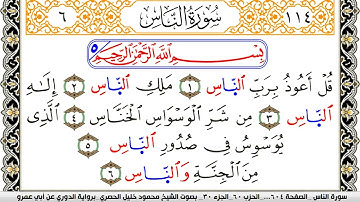 ١١٤ سُورَةُ النَّاسِ ٦
بِسْمِ اللَّهِ الرَّحْمَٰنِ الرَّحِيمِ
قُلْ أَعُوذُ بِرَبِّ النَّاسِ ١ مَلِكِ النَّاسِ ٢ إِلَٰهِ
النَّاسِ ٣ مِن شَرِّ الْوَسْوَاسِ الْخَنَّاسِ ٤ الَّذِي
يُوَسْوِسُ فِي صُدُورِ النَّاسِ ٥
مِنَ الْجِنَّةِ وَالنَّاسِ ٦
سورة الناس _ الصفحة ٦٠٤ _ الحزب ٦٠ _ الجزء ٣٠ _ بصوت الشيخ محمود خليل الحصري _ برواية الدوري عن أبي عمرو